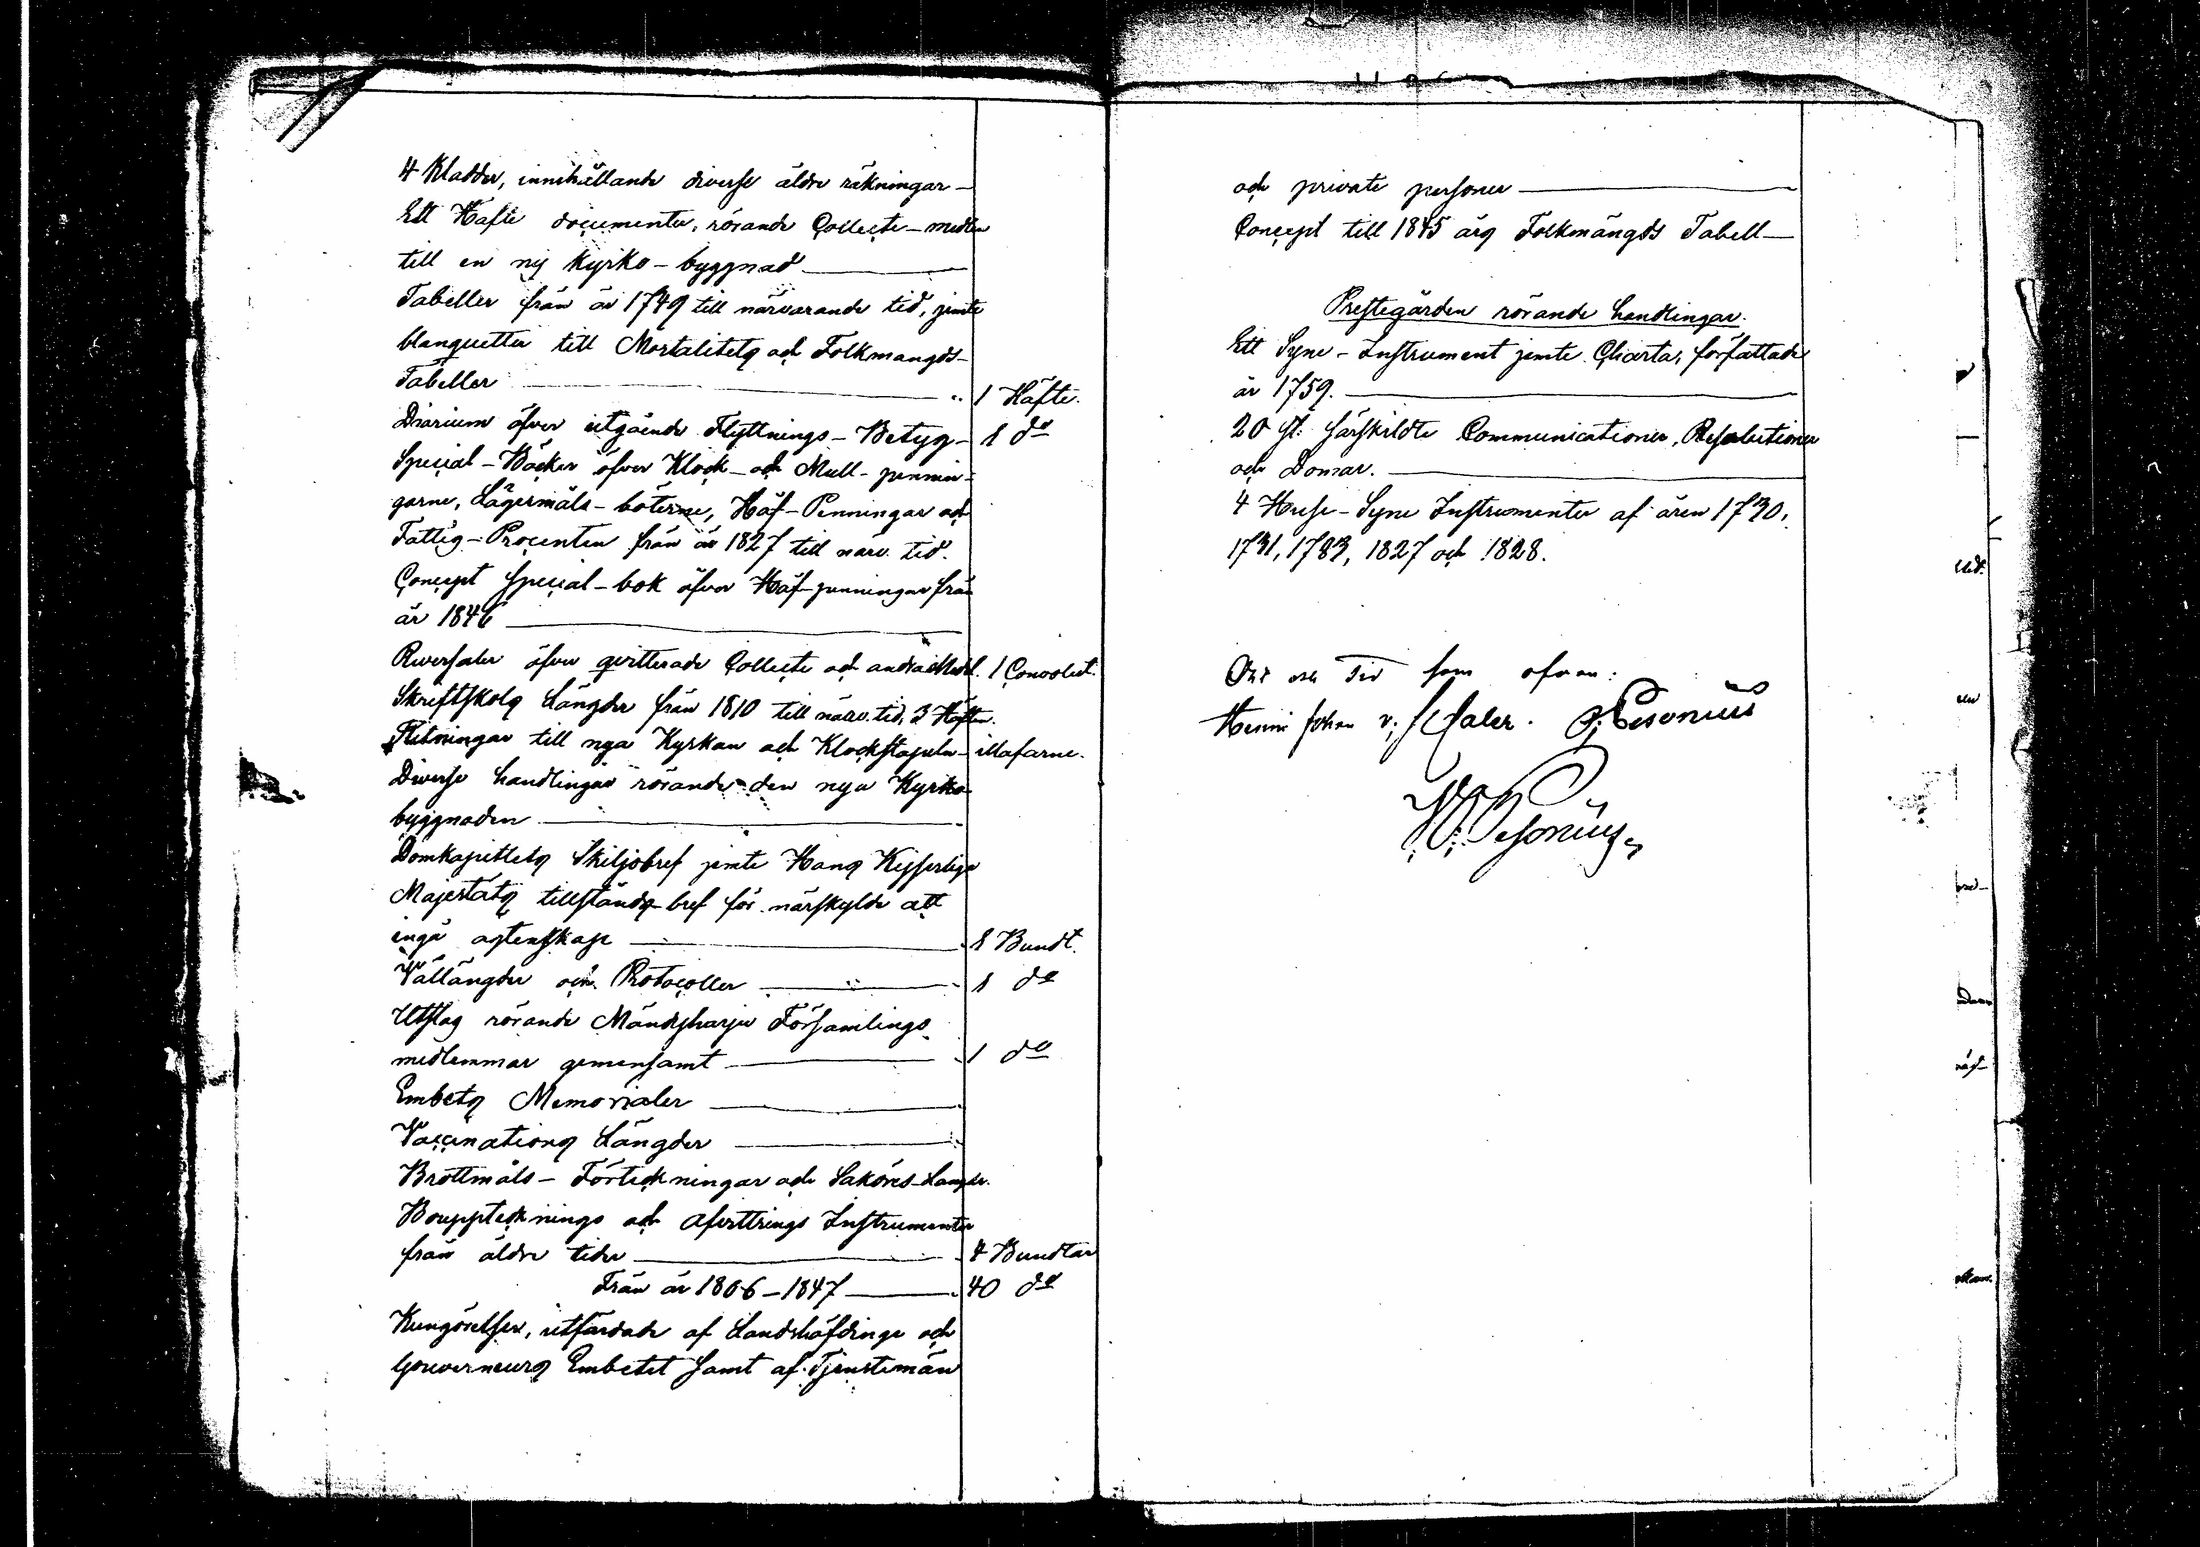 4 Kladder, innehållande diverse äldre räkningar —
Ett Häfte documenter, rörande Collecte-medlen
till en ny Kyrko-byggnad —
Tabeller från år 1749 till närvarande tid, jemte
blanquetter till Mortalitets och Folkmangds-
Tabeller — 1 Häfte.
Diarium öfver utgående Flyttnings-Betyg — 1 do
Special-Böcker öfver Klock- och Mull-pennin-
garne, Lägermåls-böterne, Häf-Penningar och
Fattig-Procenten från år 1827 till närv. tid.
Concept special-bok öfver Häf-penningar från
år 1846 —
Reversaler öfver qvitterade Collecte och andra Medel. 1 Convolut.
Skriftskols Längder från 1810 till närv. tid, 3 Häften.
Ritningar till nya Kyrkan och Klockstapeln — illafarne.
Diverse handlingar rörande den nya Kyrko-
byggnaden —
Domkapitlets Skiljobref jemte Hans Kejserliga
Majestäts tillstånds-bref för närskylde att
ingå agtenskap — 1 Bundt.
Vallängder och Protocoller — 1 do
Utslag rörande Mändyharju Församlings
medlemmar gemensamt — 1 do
Embets Memorialer —
Vaccinations Längder —
Brottmåls-Förteckningar och Saköres-Längder.
Bouppteknings och Afvittrings Instrumenter
från äldre tider — 4 Bundtar
Från år 1806-1847 — 40 do
Kungörelser, utfärdade af Landshöfdinge och
Gouverneurs Embetet samt af Tjenstemän
och private personer —
Concept till 1845 års Folkmängds Tabell —
Prestegården rörande handlingar.
Ett Syne-Instrument jemte Charta, författade
år 1759. —
20 st. särskildte Communicationer, Resolutioner
och Domar. —
4 Huse-Syne Instrumenter af åren 1730,
1731, 1783, 1827 och 1828.
Ort och Tid som ofvan:
Henric Johan v; Fesonius
W: Fesonius